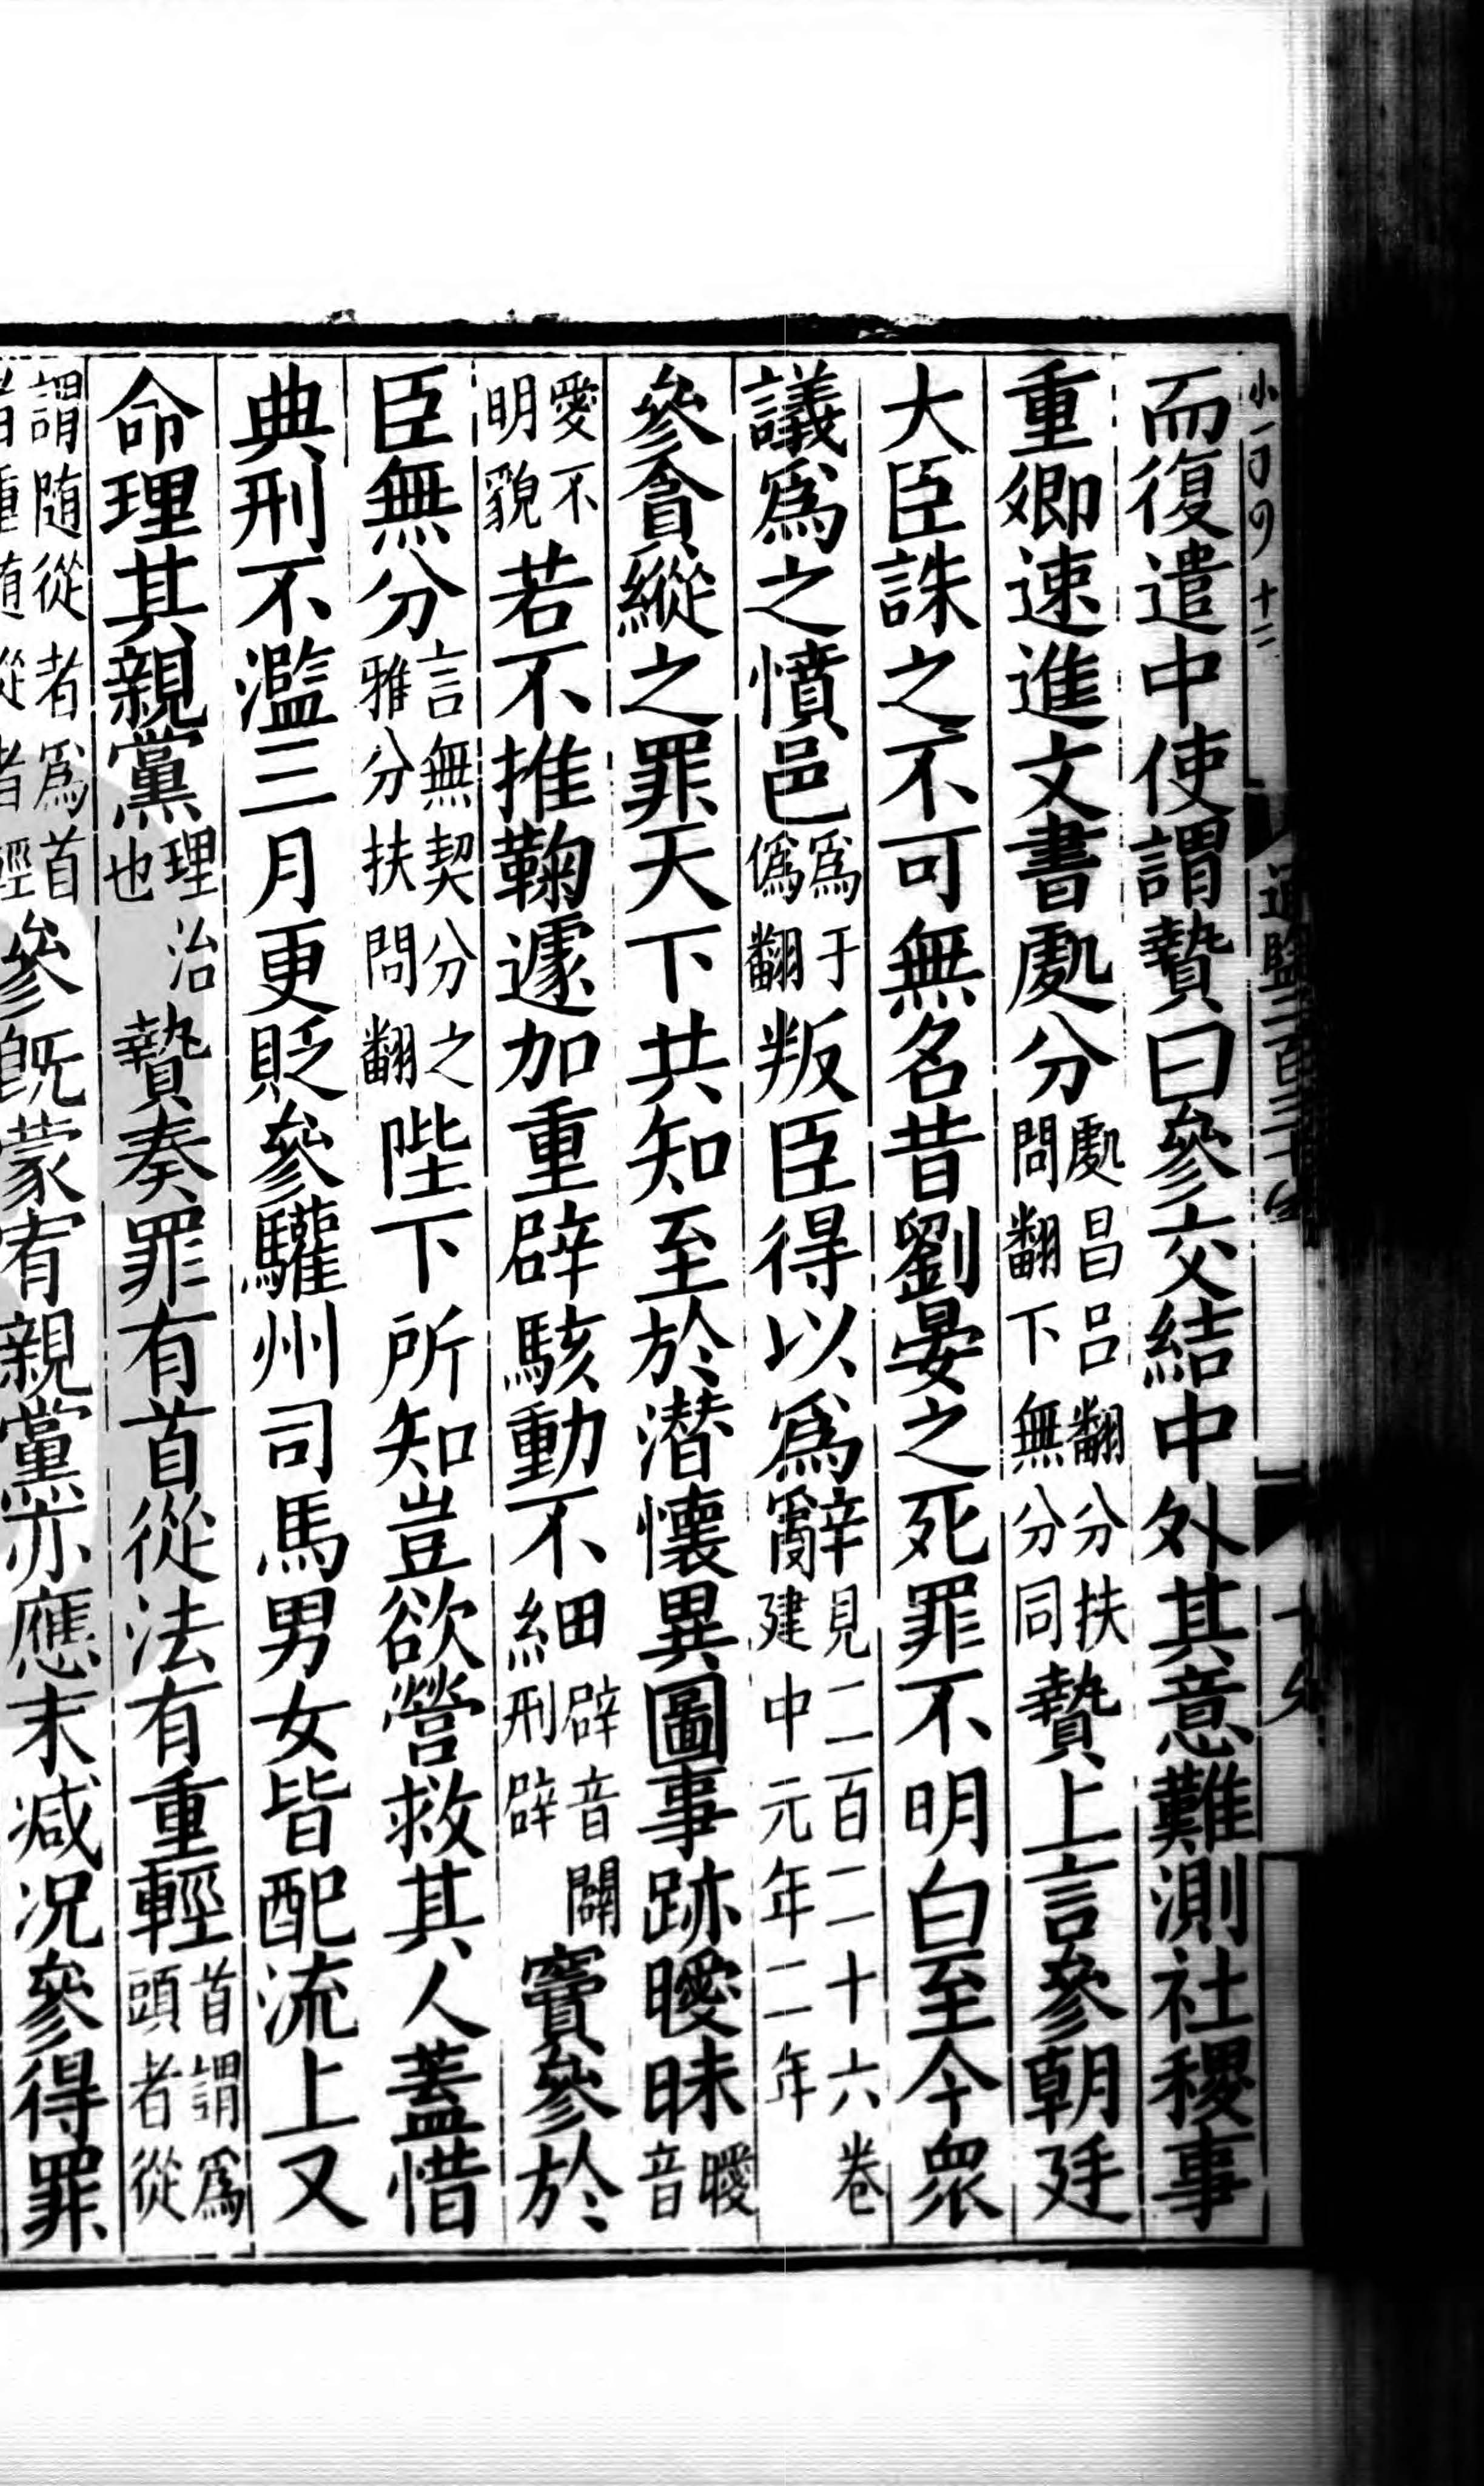 而復遣中使謂贄曰參交結中外其意難測社稷事
重卿速進文書處分處昌呂翻分扶問翻下無分同贄上言參朝廷
大臣誅之不可無名昔劉晏之死罪不明白至今衆
議爲之憤邑爲于僞翻叛臣得以爲辭見二百二十六卷建中元年二年
參貪縱之罪天下共知至於潜懷異圖事跡曖昧曖音
愛不明貌若不推鞫遽加重辟駭動不細田辟音闢刑辟竇參於
臣無分言無契分之雅分扶問翻陛下所知豈欲營救其人蓋惜
典刑不濫三月更貶參驩州司馬男女皆配流上又
命理其親黨理治也贄奏罪有首從法有重輕首謂爲頭者從
謂随從者爲首者重随從者輕參旣蒙宥親黨亦應末減况參得罪